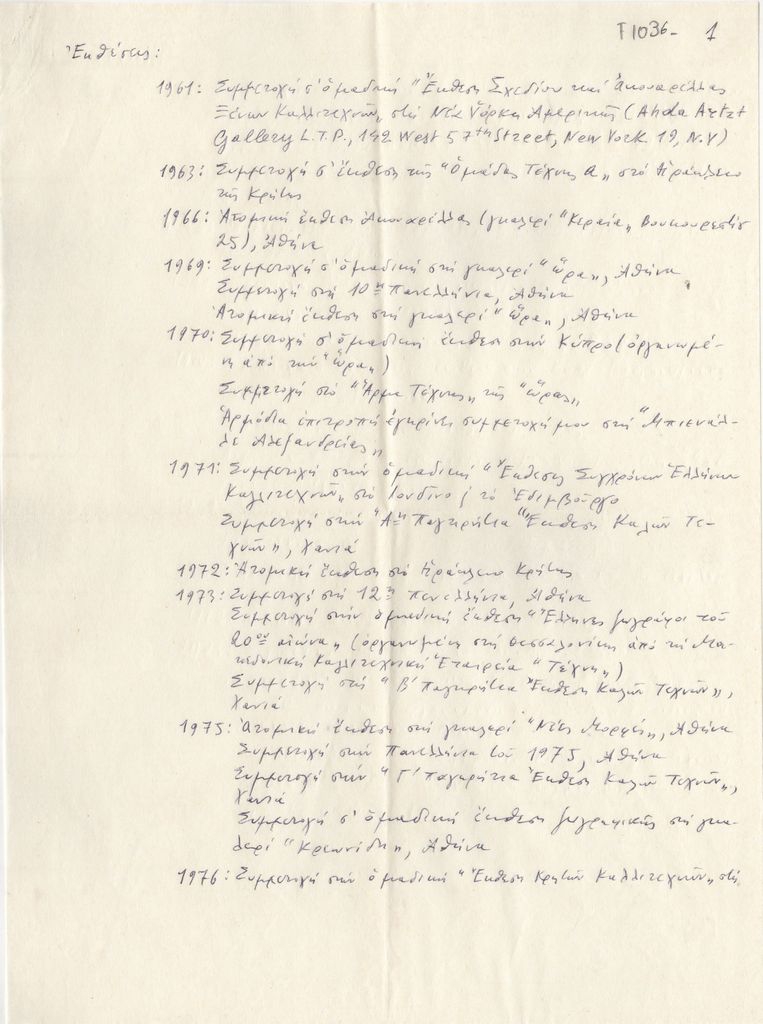 Τ1036- 1
Ἐκθέσεις:
1961: Συμμετοχή σ' ὁμαδική "Ἔκθεση Σχεδίου καί Ἀκουαρέλλας
Ξένων Καλλιτεχνῶν„ στή Νέα Ὑόρκη Ἀμερικῆς (Ahda Artzt
Gallery L.T.P., 142 West 57th Street, New York 19, N.Y)
1963: Συμμετοχή σ' ἔκθεση τῆς "Ὁμάδας Τέχνης α„ στό Ἡράκλειο
τῆς Κρήτης
1966: Ἀτομική ἔκθεση ἀκουαρέλλας (γκαλερί "Κεραία„ Βουκουρεστίου
25), Ἀθήνα
1969: Συμμετοχή σ' ὁμαδική στή γκαλερί "Ὥρα„, Ἀθήνα
Συμμετοχή στή 10η Πανελλήνια, Ἀθήνα
Ἀτομική ἔκθεση στή γκαλερί "Ὥρα„, Ἀθήνα
1970: Συμμετοχή σ' ὁμαδική ἔκθεση στήν Κύπρο (ὀργανωμέ-
νη ἀπό τήν "Ὥρα„)
Συμμετοχή στό "Ἅρμα Τέχνης„ τῆς "Ὥρας„
Ἁρμόδια ἐπιτροπή ἐγκρίνει συμμετοχή μου στή "Μπιενάλ-
λε Ἀλεξανδρείας„
1971: Συμμετοχή στήν ὁμαδική "Ἔκθεσις Συγχρόνων Ἑλλήνων
Καλλιτεχνῶν„ στό Λονδίνο ἤ τό Ἐδιμβοῦργο
Συμμετοχή στήν "Α-η Παγκρήτια Ἔκθεση Καλῶν Τε-
χνῶν„, Χανιά
1972: Ἀτομική ἔκθεση στό Ἡράκλειο Κρήτης
1973: Συμμετοχή στή 12η Πανελλήνια, Ἀθήνα
Συμμετοχή στήν ὁμαδική ἔκθεση "Ἕλληνες ζωγράφοι τοῦ
20οῦ αἰώνα„ (ὀργανωμένη στή Θεσσαλονίκη ἀπό τή Μα-
κεδονική Καλλιτεχνική Ἑταιρεία "Τέχνη„)
Συμμετοχή στή "Β' Παγκρήτια Ἔκθεση Καλῶν Τεχνῶν„,
Χανιά
1975: Ἀτομική ἔκθεση στή γκαλερί "Νέες Μορφές„, Ἀθήνα
Συμμετοχή στήν Πανελλήνια τοῦ 1975, Ἀθήνα
Συμμετοχή στήν "Γ' Παγκρήτια Ἔκθεση Καλῶν Τεχνῶν„,
Χανιά
Συμμετοχή σ' ὁμαδική ἔκθεση ζωγραφικῆς στή γκα-
λερί "Κρεωνίδη„, Ἀθήνα
1976: Συμμετοχή στήν ὁμαδική "Ἔκθεση Κρητῶν Καλλιτεχνῶν„ στή